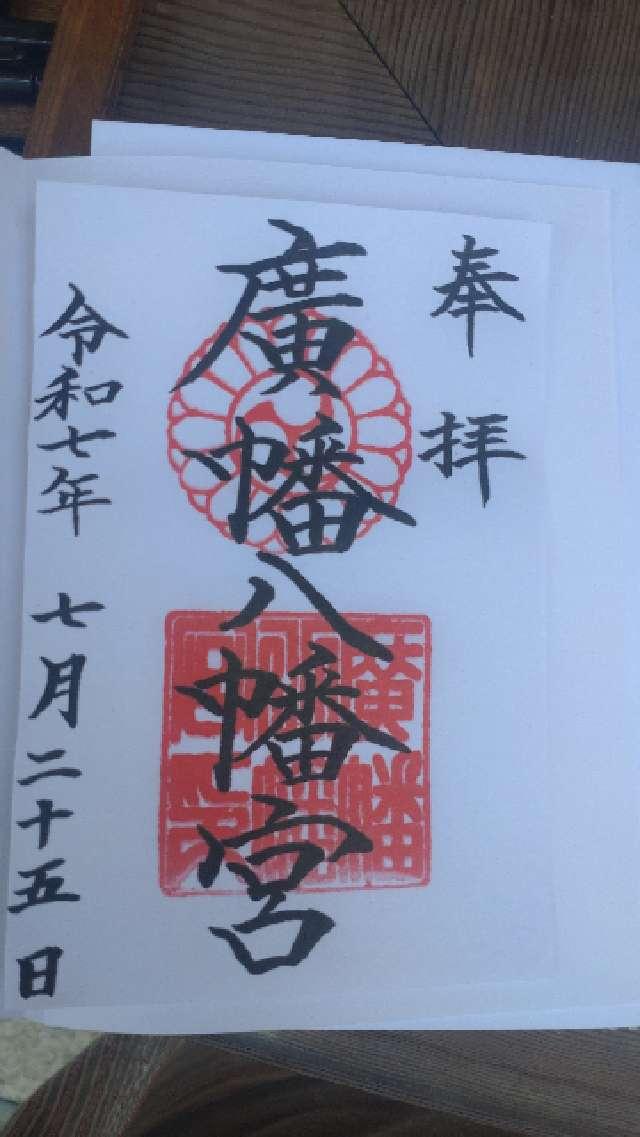 奉拝
廣幡八幡宮
廣幡
八幡
宮印
令和七年 七月二十五日